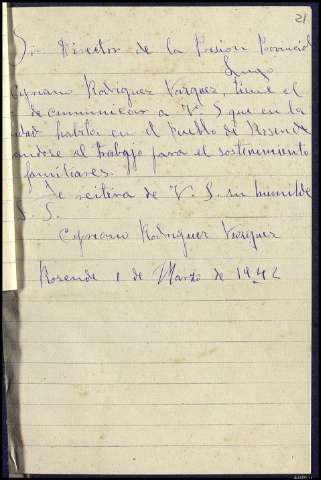 21
Sr. Director de la Prision Provincial
Lugo
Cipriano Rodriguez Vazquez tiene el
de comunicar a Vd S que en la
dad habita en el Pueblo de Rosende
andose al trabajo para el sostenimiento
familiares.
Se reitera de V. S. su humilde
S. S.
Cipriano Rodriguez Vazquez
Rosende 1 de Marzo de 1942